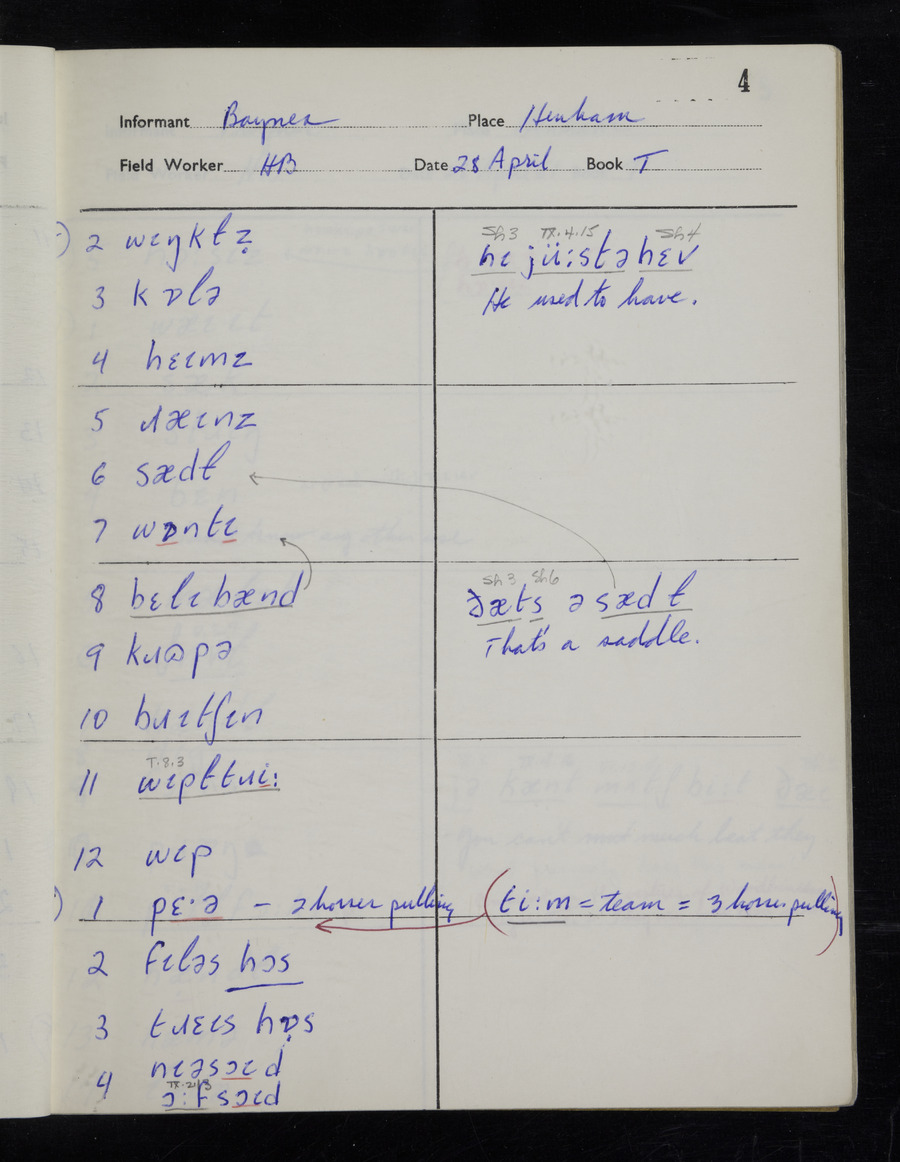 4
Informant Baynes Place Henham
Field Worker HB Date 28 April Book T
2 wɪŋktẓ
3 kɒlə
4 hɛɪmz
5 ɹæɪnz
6 sædɫ
7 wɒntɪ
8 bɛlɪbænd
9 kɹɷpə
10 bɹɪtʃɪn
T.8.3
11 wɪpɫtɹi:
12 wɪp
1 pɛ·ə – 2 horses pulling
2 fɪləs hɔs
3 tɹɛɪs hɒ̣s
4 nɪəsɔɪd
IX.2/3
ɔ:fsɔɪd
Sh3 IX.4.15 Sh4
hɪ jüi:stə hɛv
He used to have.
Sh3 Sh6
ðæts ə sædɫ
That's a saddle.
(ti:m = team = 3 horses pulling)